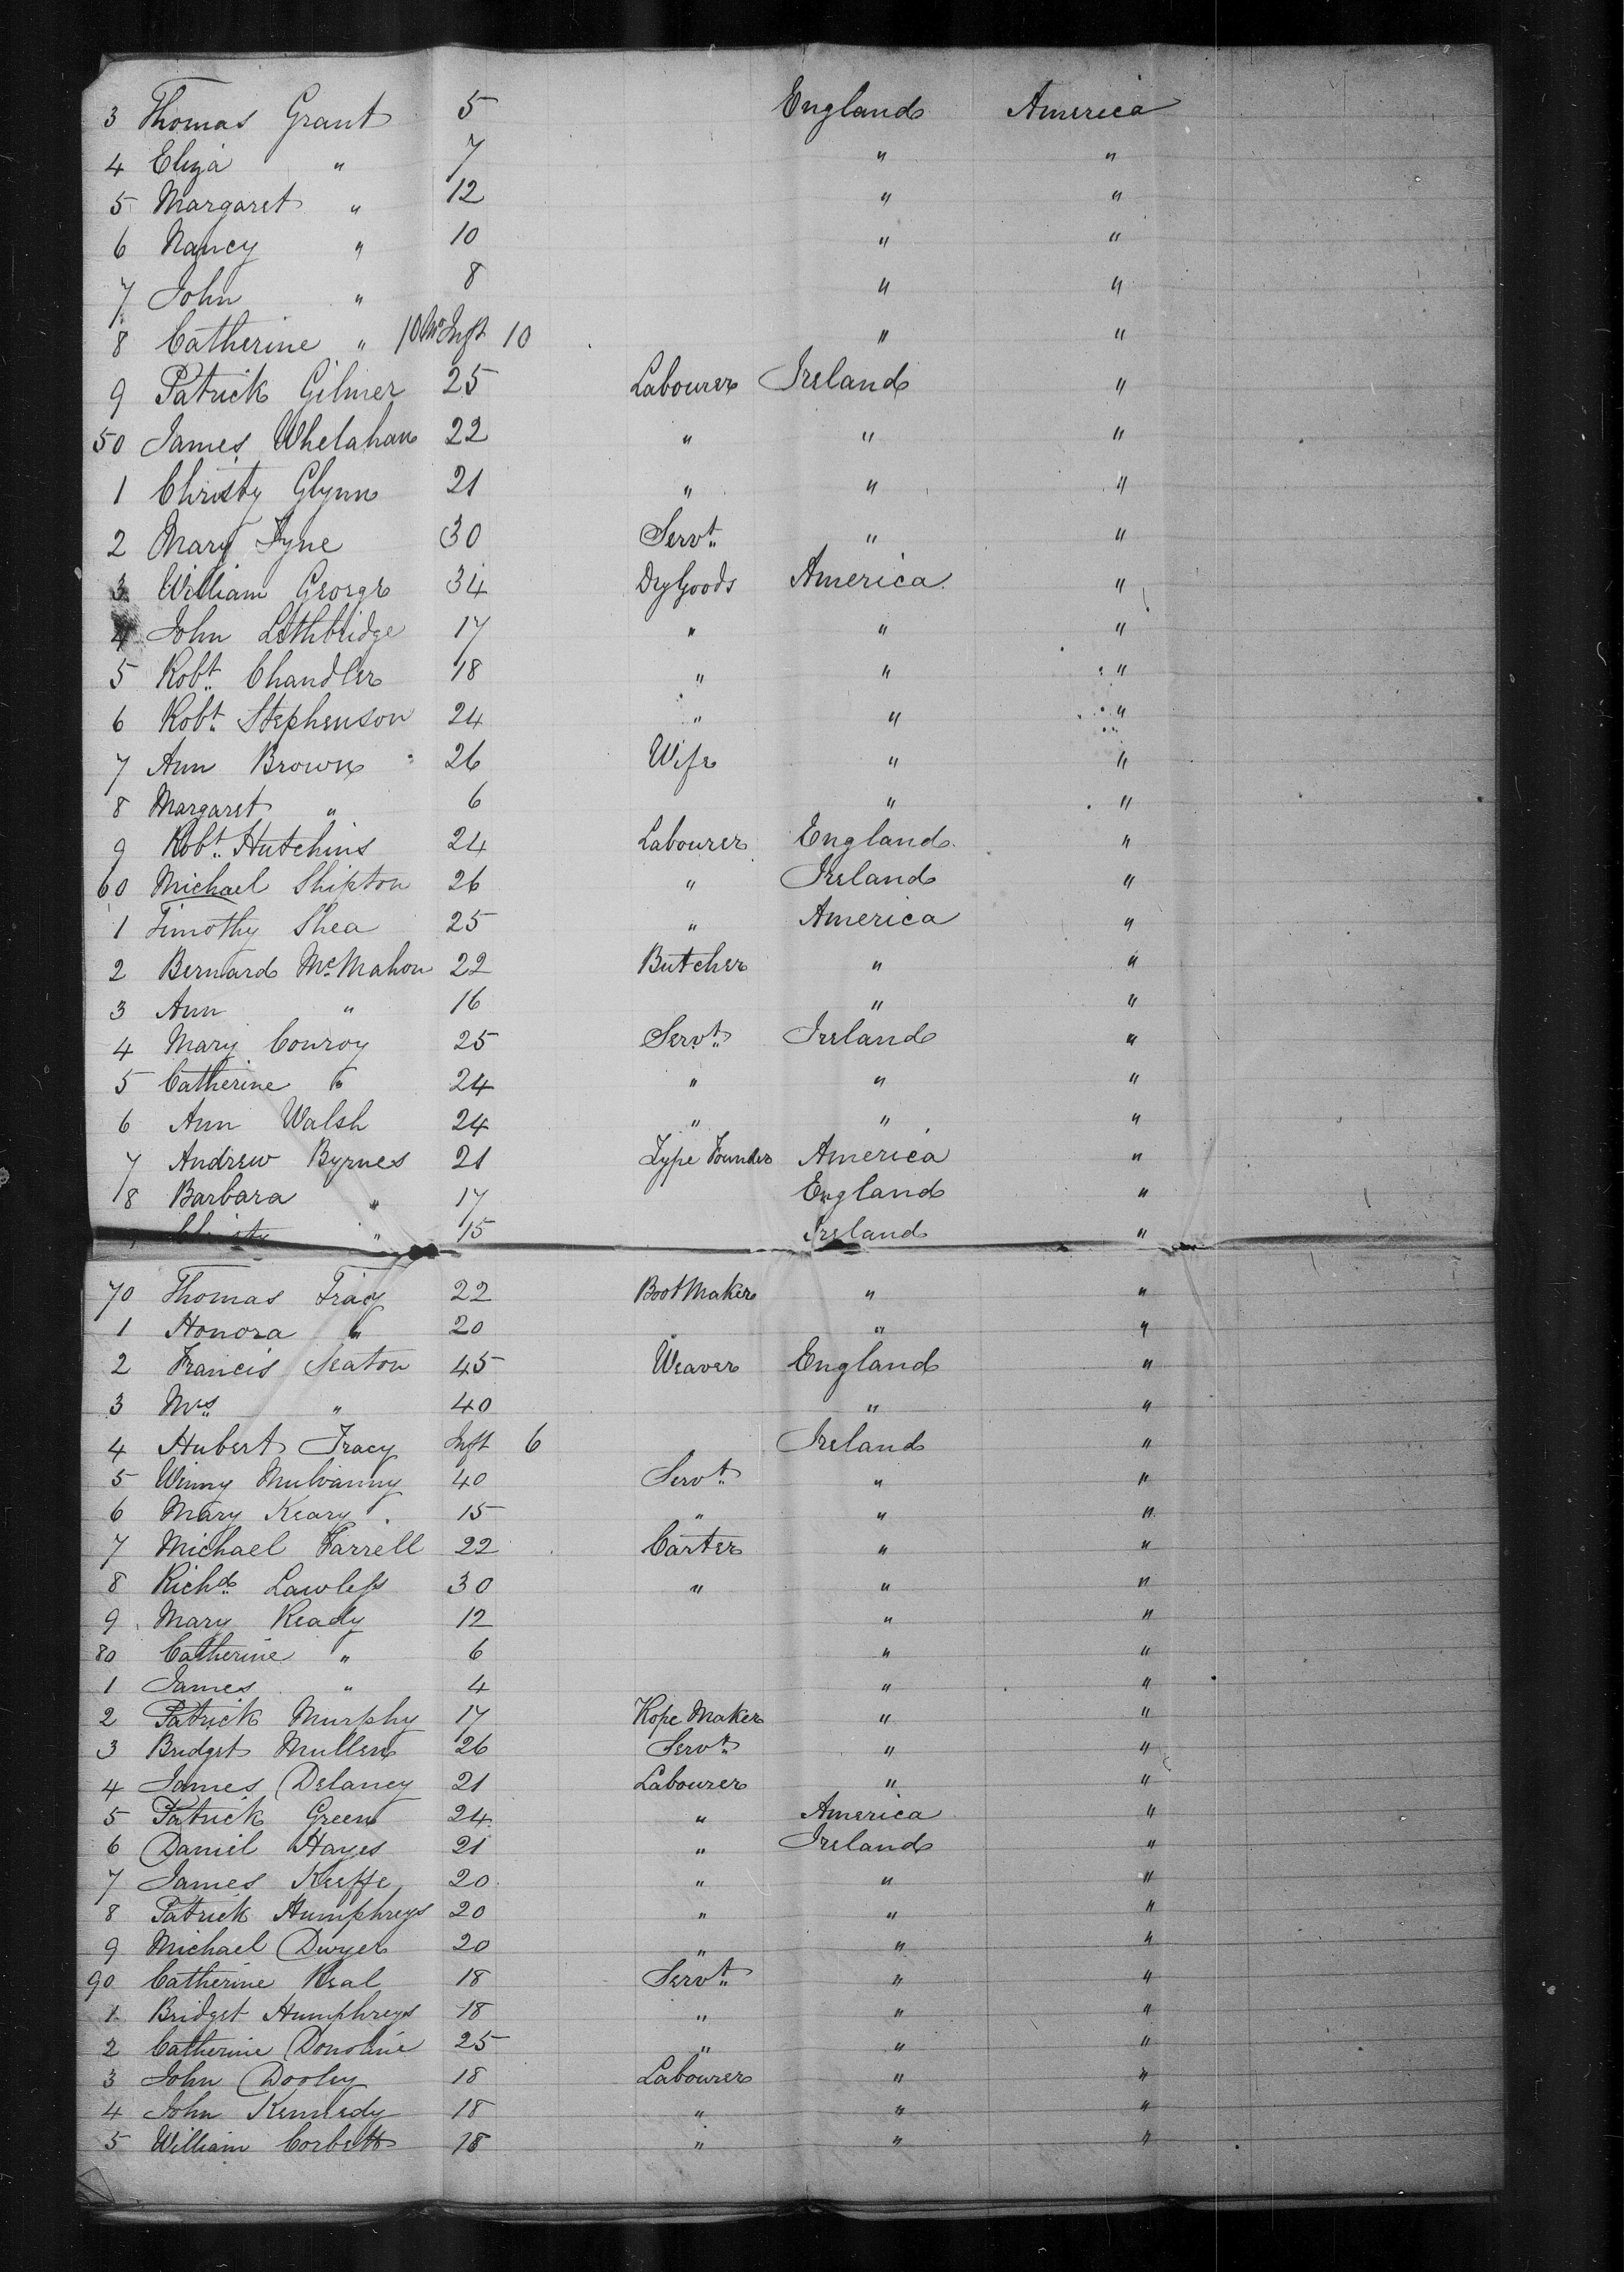 3 Thomas Grant 5 England America
4 Eliza " 7 " "
5 Margaret " 12 " "
6 Nancy " 10 " "
7 John " 8 " "
8 Catherine " 10 Mo Inft 10 " "
9 Patrick Gilmer 25 Labourer Ireland "
50 James Whelahan 22 " " "
1 Christy Glynn 21 " " "
2 Mary Fyne 30 Servt. " "
3 William George 34 Dry Goods America "
4 John Lethbridge 17 " " "
5 Robt. Chandler 18 " " "
6 Robt. Stephenson 24 " " "
7 Ann Brown 26 Wife " "
8 Margaret " 6 " "
9 Robt. Hutchins 24 Labourer England "
60 Michael Shipton 26 " Ireland "
1 Timothy Shea 25 " America "
2 Bernard McMahon 22 Butcher " "
3 Ann " 16 " "
4 Mary Conroy 25 Servt. Ireland "
5 Catherine " 24 " " "
6 Ann Walsh 24 " " "
7 Andrew Byrnes 21 Type Founder America "
8 Barbara " 17 England "
" 15 Ireland "
70 Thomas Tracy 22 Boot Maker " "
1 Honora " 20 " "
2 Francis Seaton 45 Weaver England "
3 Mrs. " 40 " "
4 Hubert Tracy Inft 6 Ireland "
5 Winny Mulvanny 40 Servt. " "
6 Mary Keary 15 " " "
7 Michael Farrell 22 Carter " "
8 Richd. Lawless 30 " " "
9 Mary Ready 12 " "
80 Catherine " 6 " "
1 James " 4 " "
2 Patrick Murphy 17 Rope Maker " "
3 Bridget Mullen 26 Servt. " "
4 James Delaney 21 Labourer " "
5 Patrick Green 24 " America "
6 Daniel Hayes 21 " Ireland "
7 James Keeffe 20 " " "
8 Patrick Humphreys 20 " " "
9 Michael Dwyer 20 " " "
90 Catherine Neal 18 Servt. " "
1 Bridget Humphreys 18 " " "
2 Catherine Donohue 25 " " "
3 John Dooley 18 Labourer " "
4 John Kennedy 18 " " "
5 William Corbett 18 " " "